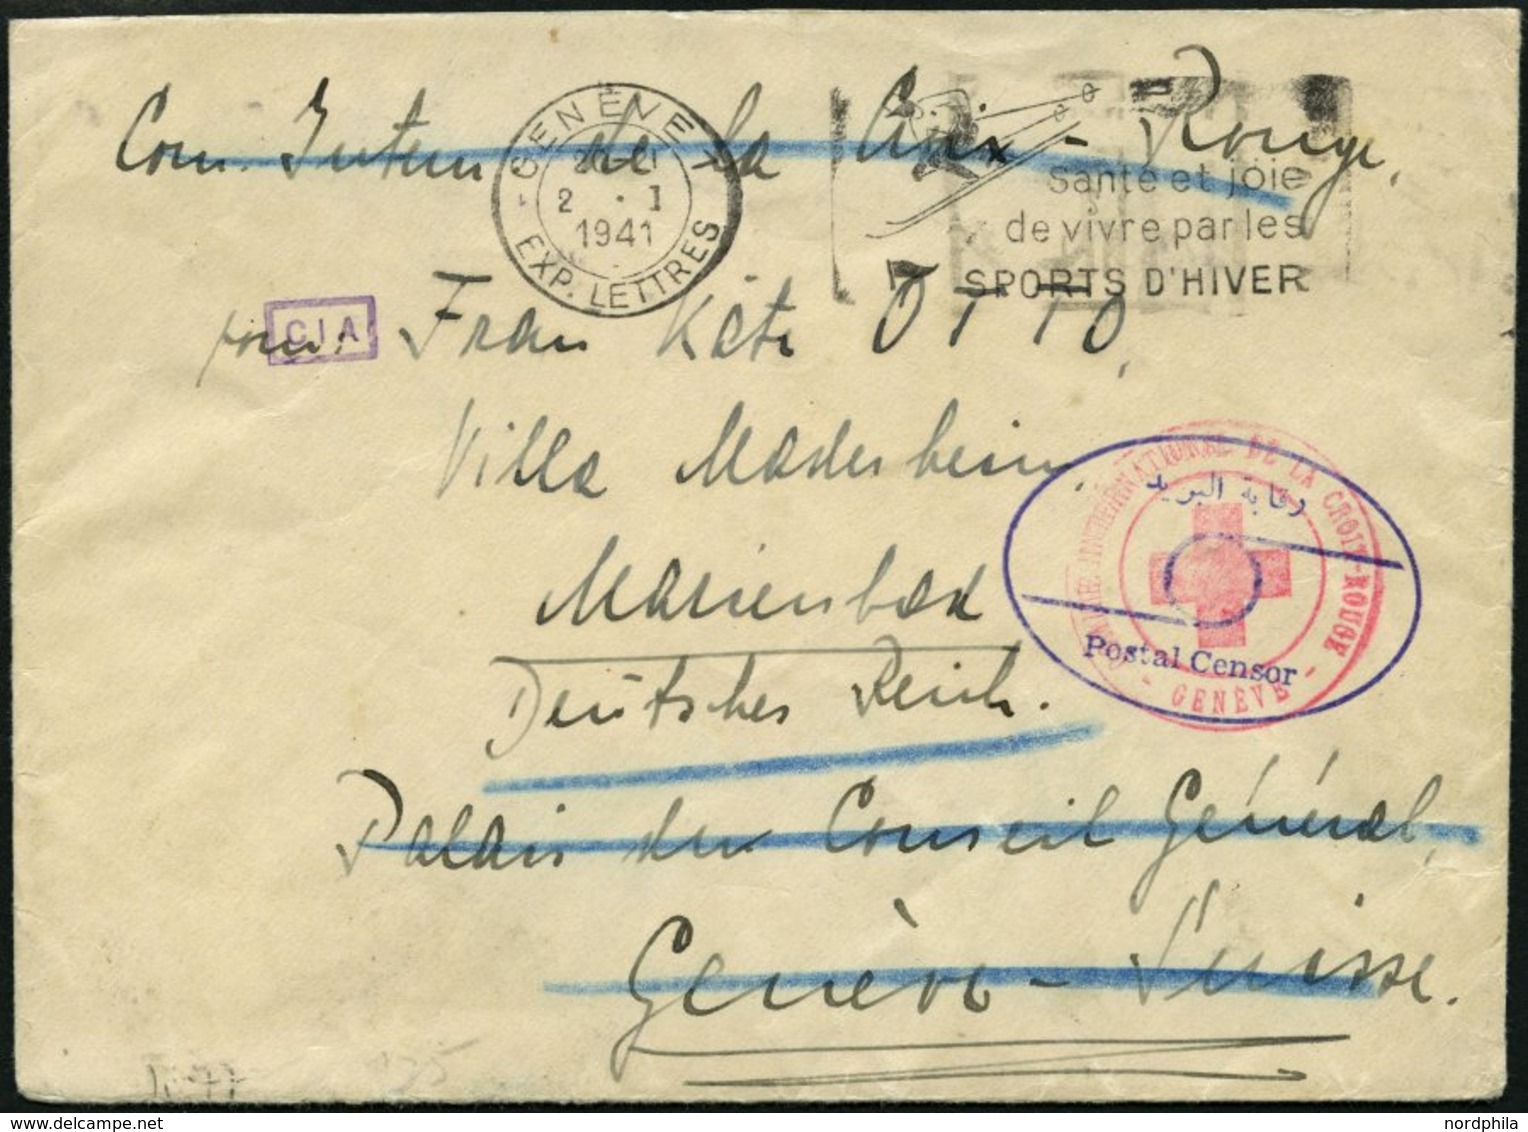 Com. Intern de la Croix-Rouge,
GENÈVE 1
2 . I
1941
EXP. LETTRES
Santé et joie
de vivre par les
SPORTS D'HIVER
pour:
CIA
Frau Käte OTTO,
Villa Maderheim,
Marienbad
Deutsches Reich.
INTERNATIONAL DE LA CROIX-ROUGE
- GENÈVE -
رقابة البريد
Postal Censor
Palais du Conseil Général,
Genève - Suisse.
125
nordphila